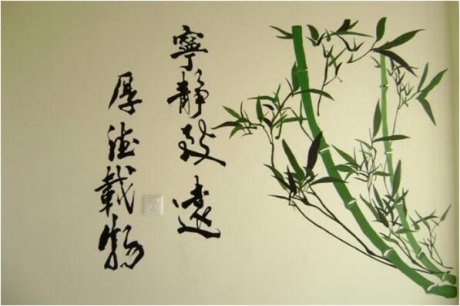 寧静致遠
厚德載物